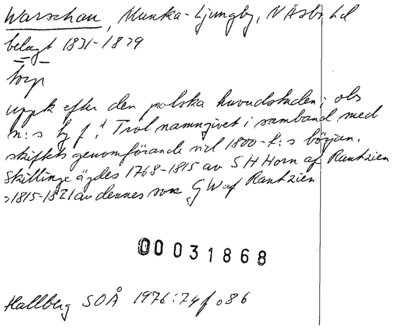 Warschau, Munka-Ljungby, NÅsbo hd
belagt 1831-1879
torp
uppk efter den polska huvudstaden; obs
n:s bf! Trol namngivet i samband med
skiftets genomförande vid 1800-t:s början.
Skillinge ägdes 1768-1815 av S H Horn af Rantzien
>1815-1821 av dennes son G W af Rantzien
00031868
Hallberg SOÅ 1976:74f o 86